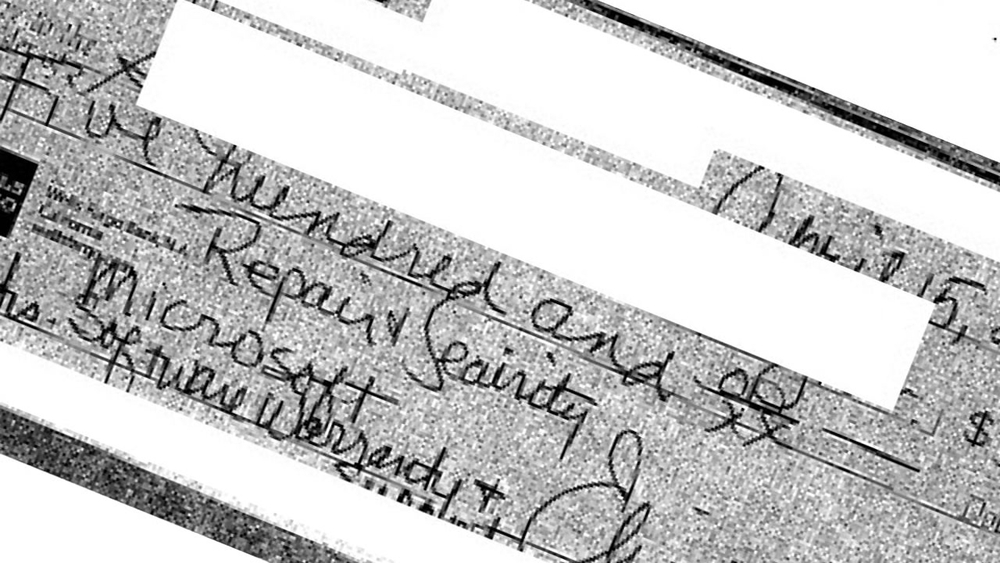 April 15,
Five Hundred and 00/xx
$
Wells Fargo Bank, N.A.
California
wellsfargo.com
Repair & Security
Microsoft
Software Warranty +